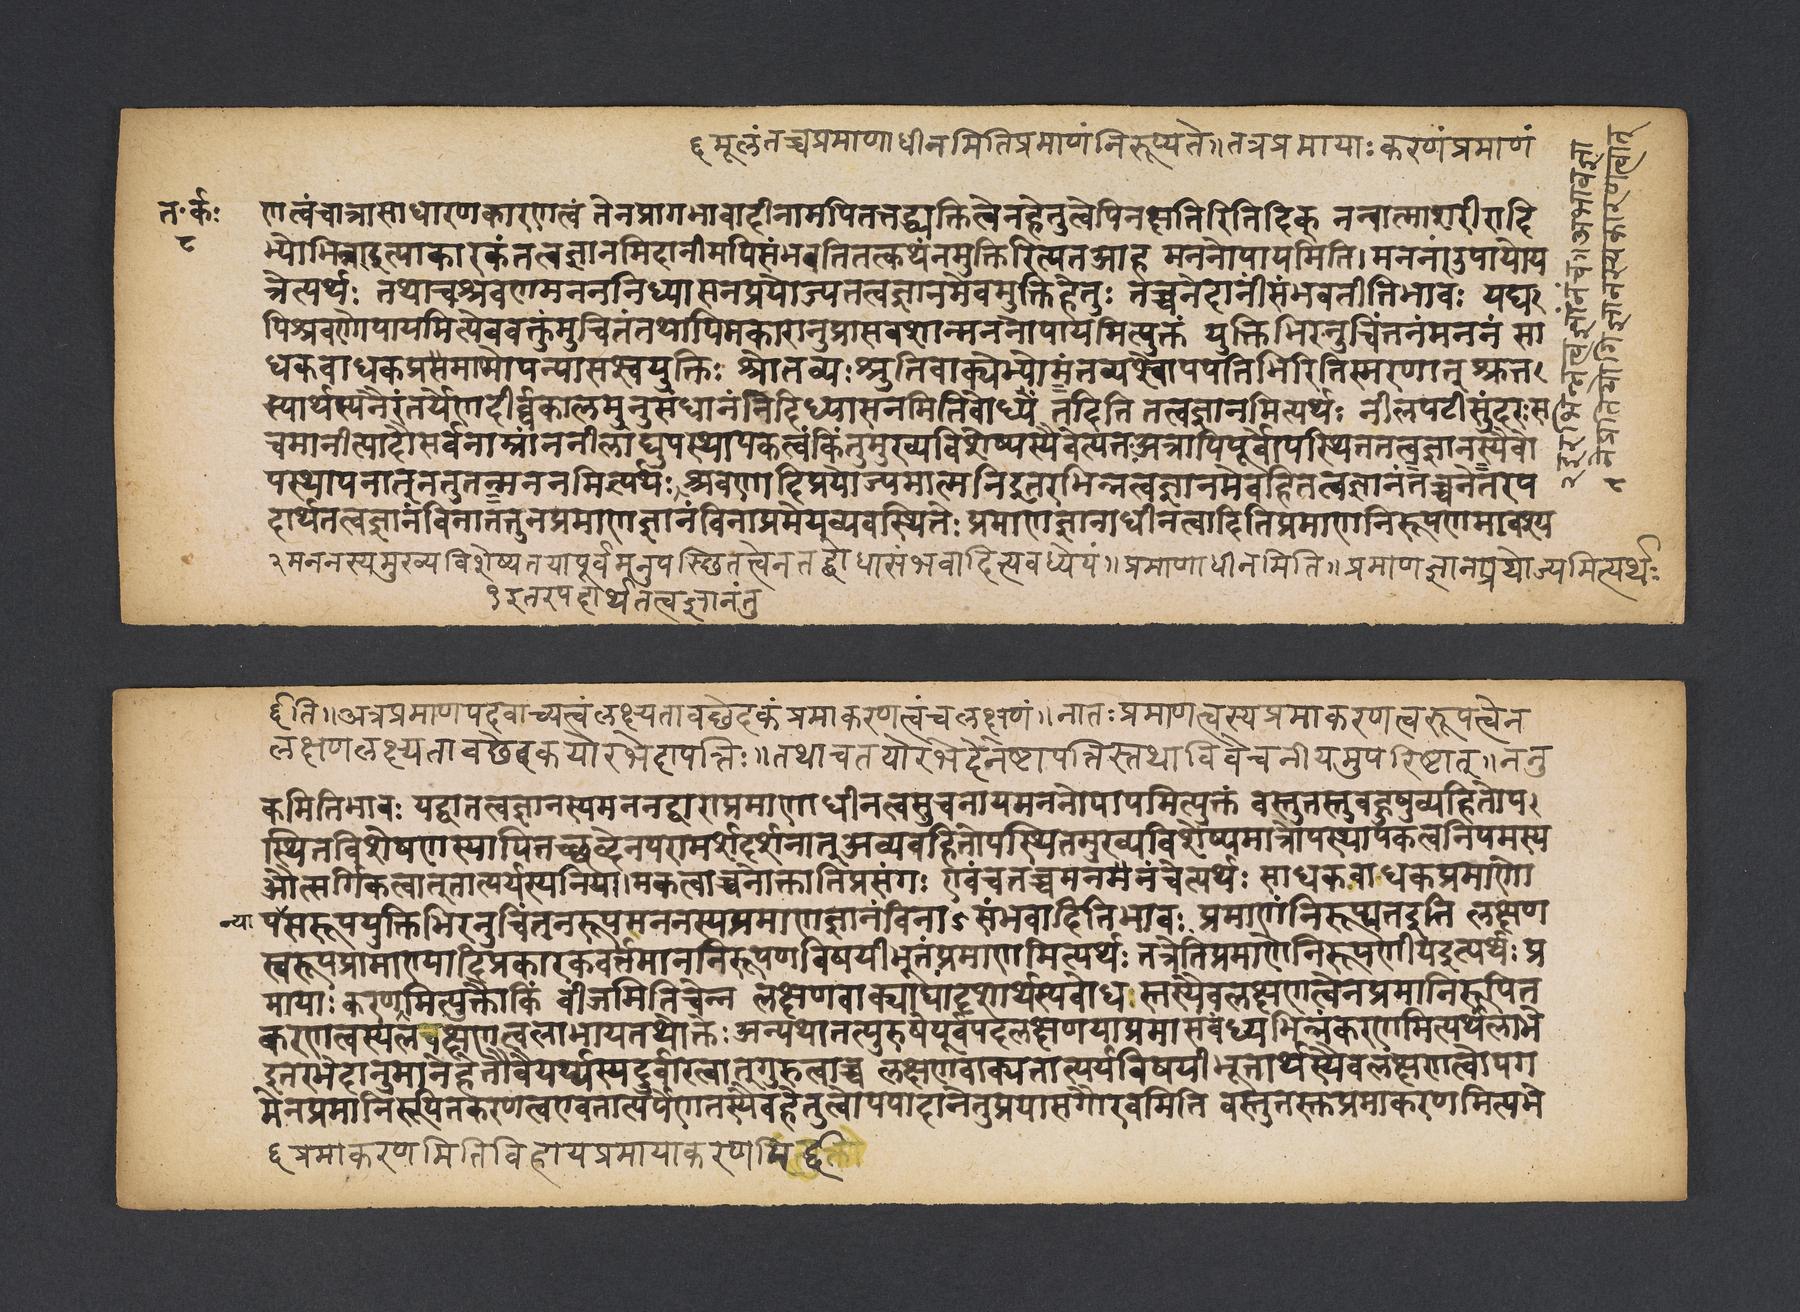 ६ मूलं तच्चप्रमाणाधीनमितिप्रमाणंनिरूप्यते॥तत्रप्रमायाः करणंप्रमाणं
त॰र्क॰
८
णत्वंचात्रासाधारणकारणत्वं तेनप्रागभावादीनामपितत्तद्व्यक्तित्वेनहेतुत्वेपिनक्षतिरितिदिक् नन्वात्माशरीरादि
भ्योभिन्नइत्याकारकंतत्वज्ञानमिदानीमपिसंभवतितत्कथंनमुक्तिरित्यतआह मननोपायमिति।मननंउपायोय
त्रेत्यर्थः तथाचश्रवणमनननिध्यासनप्रयोज्यतत्वज्ञानमेवमुक्तिहेतुः तच्चनेदानींसंभवतीतिभावः यद्य
पिश्रवणोपायमित्येववक्तुंमुचितंतथापिमकारानुप्रासवशान्मननोपायमित्युक्तं युक्तिभिरनुचिंतनंमननं सा
धकबाधकप्रसमाणोपन्यासश्चयुक्तिः श्रोतव्यः श्रुतिवाक्येभ्योमंतव्यश्चोपपत्तिभिरितिस्मरणात् श्रुत
स्यार्थस्यनैरंतर्येणदीर्घकालमनुसंधानंनिदिध्यासनमितिबोध्यं तदिति तत्वज्ञानमित्यर्थः नीलघटीसुंदरःस
चमानीत्यादौसर्वनाम्नांननीलाद्युपस्थापकत्वंकिंतुमुख्यविशेष्यस्यैवेत्यतःअत्रापिपूर्वोपस्थिततत्वज्ञानस्यैवो
पस्थापनात्ननुतन्मननमित्यर्थः श्रवणादिप्रयोज्यमात्मनिइतरभिन्नत्वंज्ञानमेवहितत्वज्ञानंतच्चनेतरप
दार्थतत्वज्ञानंविनातत्तुनप्रमाणज्ञानंविनाप्रमेयव्यवस्थितेः प्रमाणज्ञानाधीनत्वादितिप्रमाणनिरूपणमावश्य
२मननस्यमुख्यविशेष्यतयापूर्वमनुपस्थितत्वेनतद्बोधासंभवादित्यवध्येयं॥प्रमाणाधीनमिति॥प्रमाणज्ञानप्रयोज्यमित्यर्थः
१इतरपदार्थतत्वज्ञानंतु
र्इति॥अत्रप्रमाणपदवाच्यत्वंलक्ष्यतावछेदकंप्रमाकरणत्वंचलक्षणं॥नातःप्रमाणत्वस्यप्रमाकरणत्वरूपत्वेन
लक्षणलक्ष्यतावछेदकयोरभेदापत्तिः॥तथाचतयोरभेदेनेष्टापत्तिस्तथाविवेचनीयमुपरिष्टात्॥ननु
कमितिभावः यद्वातत्वज्ञानस्यमननद्वाराप्रमाणाधीनत्वसुचनायमननोपायमित्युक्तं वस्तुतस्तुवहुषुव्यहितोप
स्थितविशेषणस्यापितच्छब्देनपरामर्शदर्शनात्अव्यवहितोपस्थितमुख्यविशेष्यमात्रोपस्थापकत्वनियमस्य
औत्सर्गिकत्वात्तात्पर्यस्यनियामकत्वाच्चनोक्तातिप्रसंगः एवंचतच्चमननंचेत्यर्थः साधकबाधकप्रमाणो
न्या
पसरूपयुक्तिभिरनुचिंतनरूपमननस्यप्रमाणज्ञानंविनाऽसंभवादितिभावः प्रमाणंनिरूप्यतइति लक्षण
स्वरूपप्रामाण्यादिप्रकारकवर्त्तमाननिरूपणविषयीभूतंप्रमाणमित्यर्थः तत्रेतिप्रमाणेनिरूपणीयेइत्यर्थः प्र
मायाः करणमित्युक्तौकिं बीजमितिचेन्न लक्षणवाक्याद्यादृशार्थस्यबोधस्तस्यैवलक्षणत्वेनप्रमानिरूपित
करणत्वस्यलक्षणत्वलाभायतथोक्तेः अन्यथातत्पुरुषेपूर्वपदलक्षणयाप्रमासंबंध्यभिन्नंकरणमित्यर्थलाभे
इतरभेदानुमानेहेतौवैयर्थ्यस्यदुर्वारत्वात्गुरुत्वाच्च लक्षणवाक्यतात्पर्यविषयीभूतार्थस्यैवलक्षणत्वोपग
मेनप्रमानिरूपितकरणत्वएवतात्पर्येणतस्यैवहेतुत्वोपपादानेतुप्रयासगौरवमिति वस्तुतस्तुप्रमाकरणमित्यभे
६प्रमाकरणमितिविहायप्रमायाकरणमि